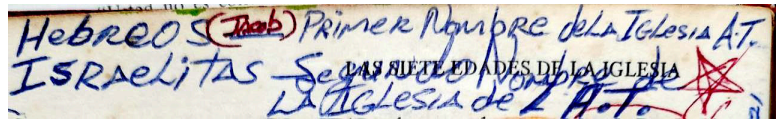 HebREOS (Jacob) PRIMER NombRE de LA IGLesIA A.T.
ISRAeLITAS — Segundo Nombre de
LAS SIETE EDADES DE LA IGLESIA
LA IGLesIA deL A.T.